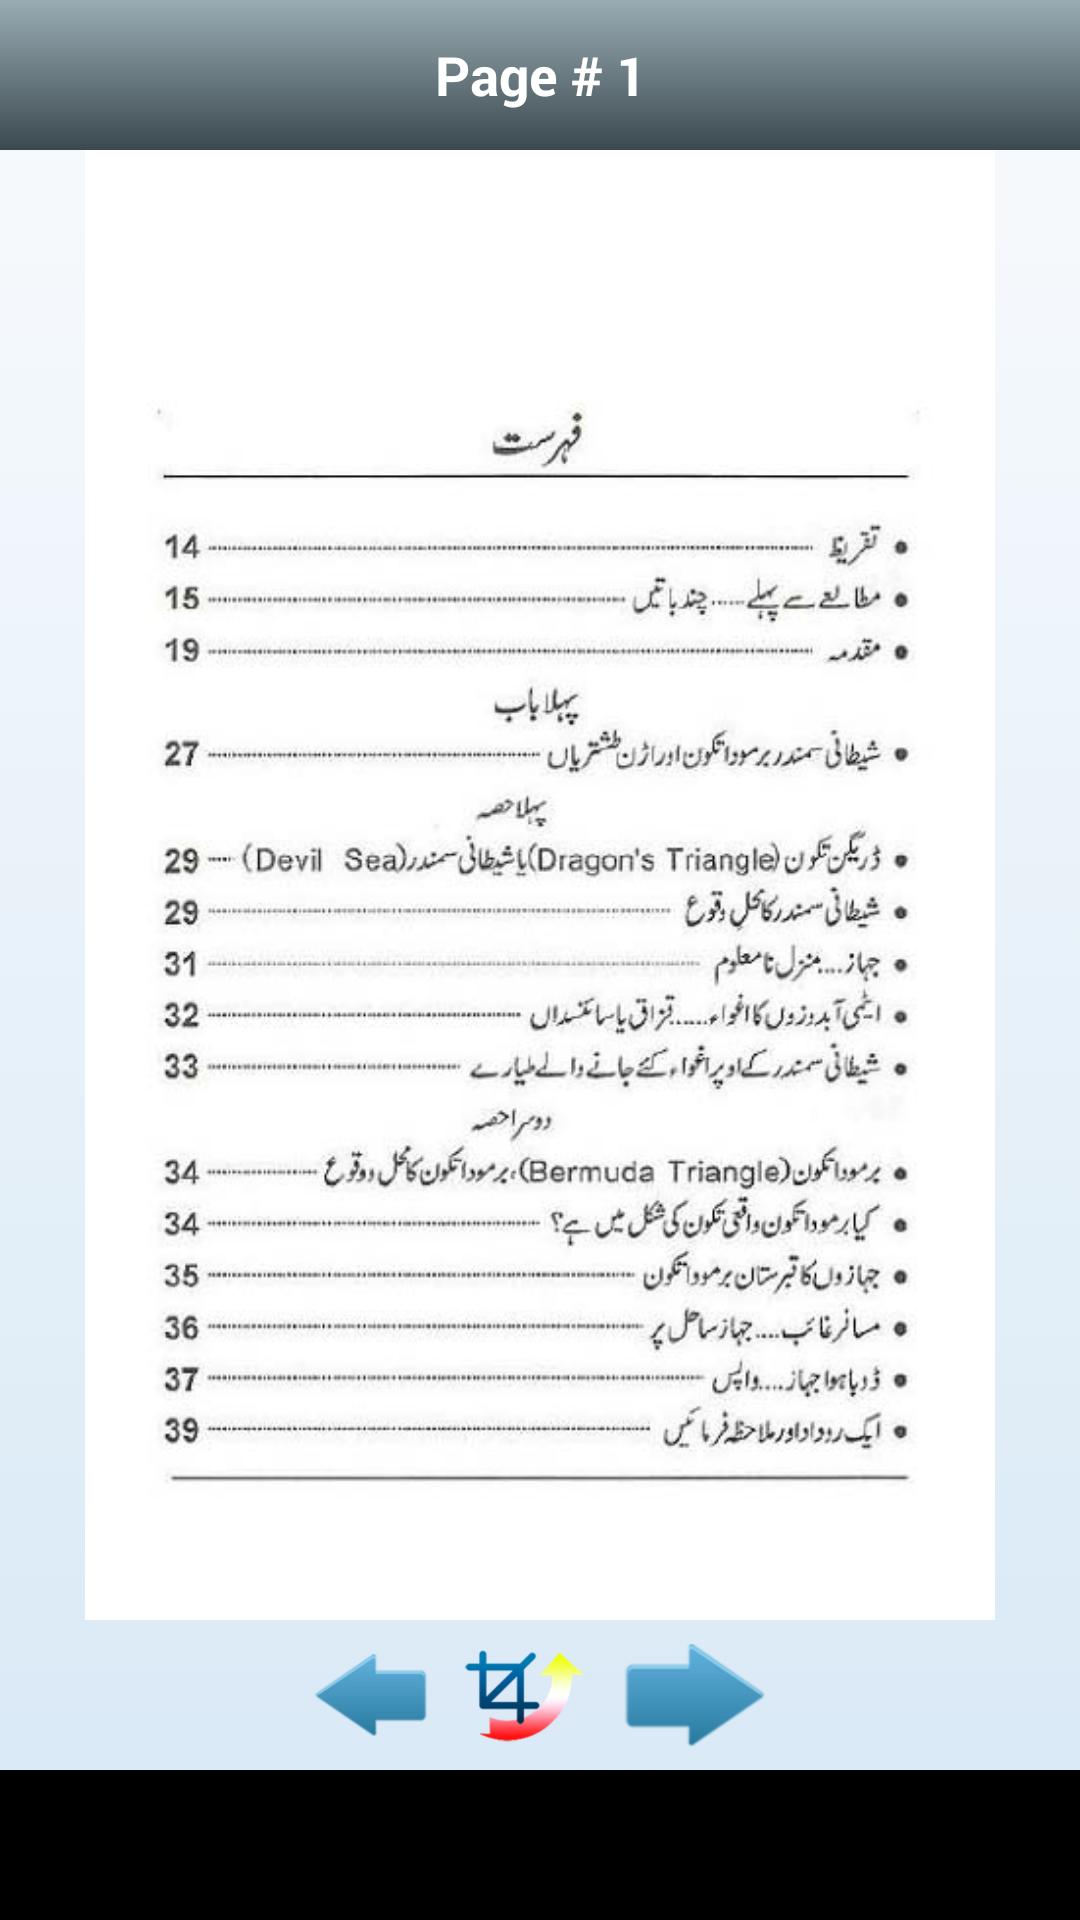 Page # 1
فہرست
• تقریظ 14
• مطالعے سے پہلے......چند باتیں 15
• مقدمہ 19
پہلا باب
• شیطانی سمندر برمودا تکون اور اڑن طشتریاں 27
پہلا حصہ
• ڈریگن تکون (Dragon's Triangle) یا شیطانی سمندر (Devil Sea) 29
• شیطانی سمندر کا محلِ وقوع 29
• جہاز....منزل نامعلوم 31
• ایٹمی آبدوزوں کا اغواء......قزاق یا سائنسداں 32
• شیطانی سمندر کے اوپر اغواء کئے جانے والے طیارے 33
دوسرا حصہ
• برمودا تکون (Bermuda Triangle)، برمودا تکون کا محل ووقوع 34
• کیا برمودا تکون واقعی تکون کی شکل میں ہے؟ 34
• جہازوں کا قبرستان برمودا تکون 35
• مسافر غائب....جہاز ساحل پر 36
• ڈوبا ہوا جہاز....واپس 37
• ایک روداد اور ملاحظہ فرمائیں 39